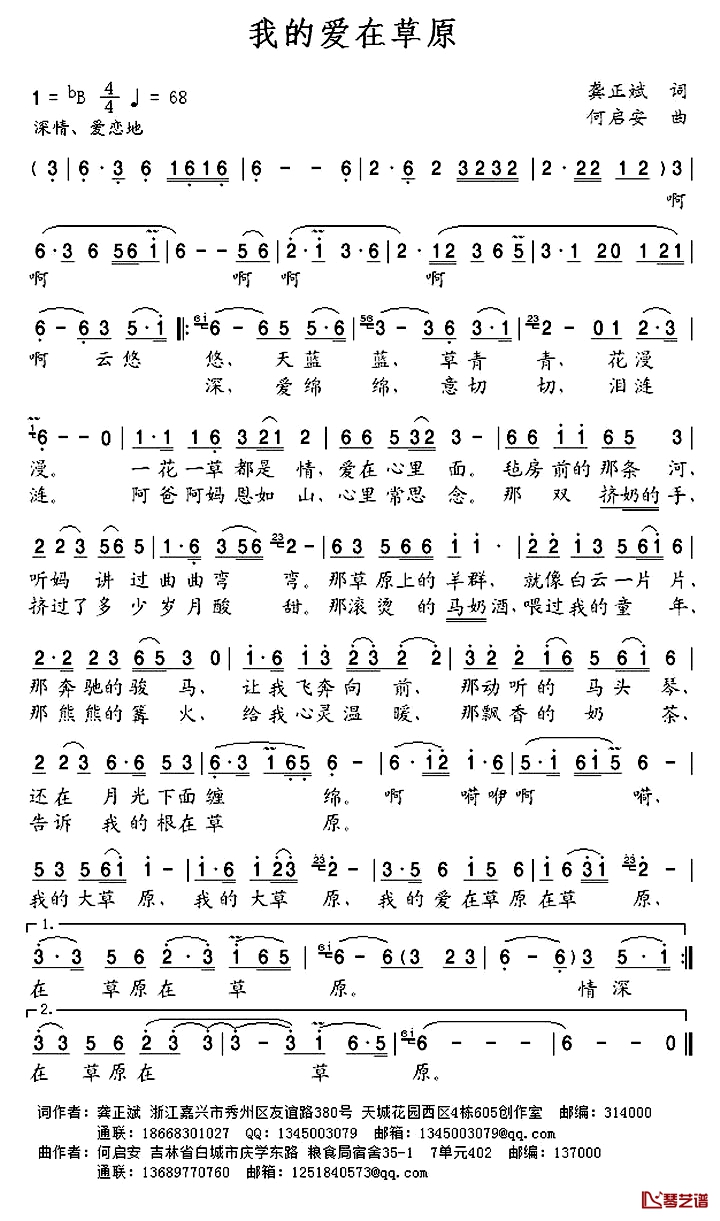 我的爱在草原
1 = ♭B 4/4 ♩ = 68
龚正斌 词
深情、爱恋地
何启安 曲
( 3 | 6 · 3 6 1616 | 6 - - 6 | 2 · 6 2 3232 | 2 · 22 1 2 ) 3 |
啊
6 · 3 6 56 1 | 6 - - 5 6 | 2 · 1 3 · 6 | 2 · 12 3 6 5 | 3 · 1 20 121 |
啊 啊 啊 啊
6 - 6 3 5 · 1 ‖: 6 - 6 5 5 · 6 | 3 - 3 6 3 · 1 | 2 - 0 1 2 · 3 |
啊 云悠 悠、 天蓝 蓝、 草青 青、 花漫
深、 爱绵 绵、 意切 切、 泪涟
6 - - 0 | 1 · 1 1 6 3 21 2 | 6 6 5 32 3 - | 6 6 1 1 6 5 3 |
漫。 一花一草都是 情、爱在心里 面。毡房前的那条 河、
涟。 阿爸阿妈恩如 山、心里常思 念。那 双 挤奶的手、
2 2 3 56 5 | 1 · 6 3 56 2 - | 6 3 5 6 6 1 1 · | 1 2 3 5 61 6 |
听妈 讲过曲曲弯 弯。那草原上的羊群, 就像白云一片片、
挤过了多少岁月酸 甜。那滚烫的马奶酒、喂过我的童 年、
2 · 2 2 3 6 5 3 0 | 1 · 6 1 3 2 3 2 2 | 3 2 2 1 6 5 61 6 |
那奔驰的骏 马、 让我飞奔向 前、 那动听的 马头琴、
那熊熊的篝 火、 给我心灵温 暖、 那飘香的 奶 茶、
2 2 3 6 · 6 5 3 | 6 · 3 1 65 6 - | 6 · 12 1 · 6 | 5 · 1 61 5 6 - |
还在 月光下面缠 绵。 啊 嗬咿啊 嗬、
告诉 我的根在草 原。
5 3 5 61 1 - | 1 · 6 1 23 2 - | 3 · 5 6 1 5 6 | 1 6 5 3 2 - |
我的大草 原、我的大草 原、我的爱在草原在草 原、
1.
3 · 3 5 6 2 · 3 | 1 65 6 - 6 ( 3 2 3 | 6 - 6 ) 5 · 1 :‖
在 草原在 草 原。 情深
2.
3 3 5 6 2 3 3 | 3 - 3 1 6 · 5 | 6 - - - | 6 - - 0 ‖
在 草原在 草 原。
词作者：龚正斌 浙江嘉兴市秀州区友谊路380号 天城花园西区4栋605创作室 邮编：314000
通联：18668301027 QQ：1345003079 邮箱：1345003079@qq.com
曲作者：何启安 吉林省白城市庆学东路 粮食局宿舍35-1 7单元402 邮编：137000
通联：13689770760 邮箱：1251840573@qq.com
琴艺谱